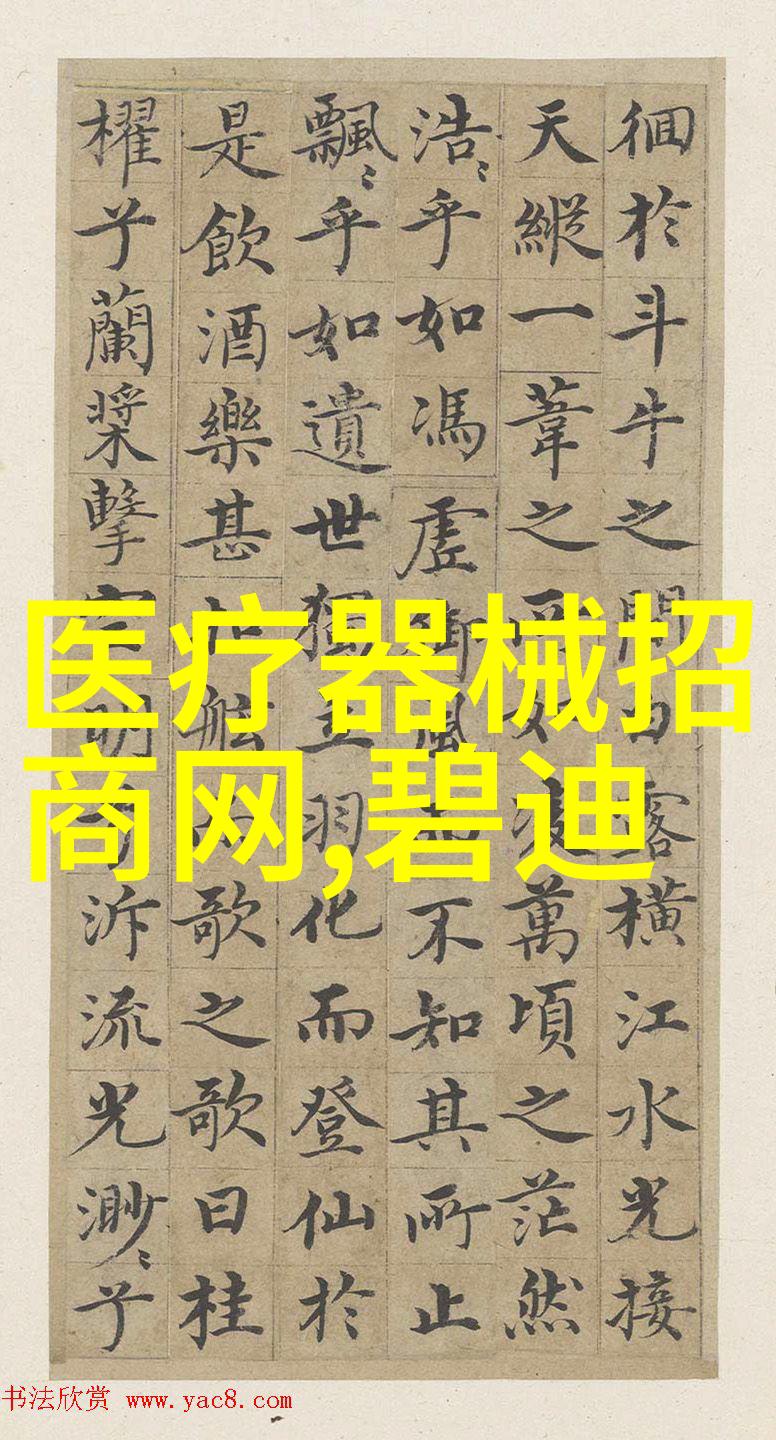 徊於斗牛之間白露橫江水光接
天縱一葦之所如凌萬頃之茫然
浩〻乎如馮虛御風而不知其所止
飄〻乎如遺世獨立羽化而登仙於
是飲酒樂甚扣舷而歌之歌曰桂
櫂兮蘭槳擊空明兮泝流光渺〻兮
医疗器械招
商网,碧迪
书法欣赏 www.yac8.com